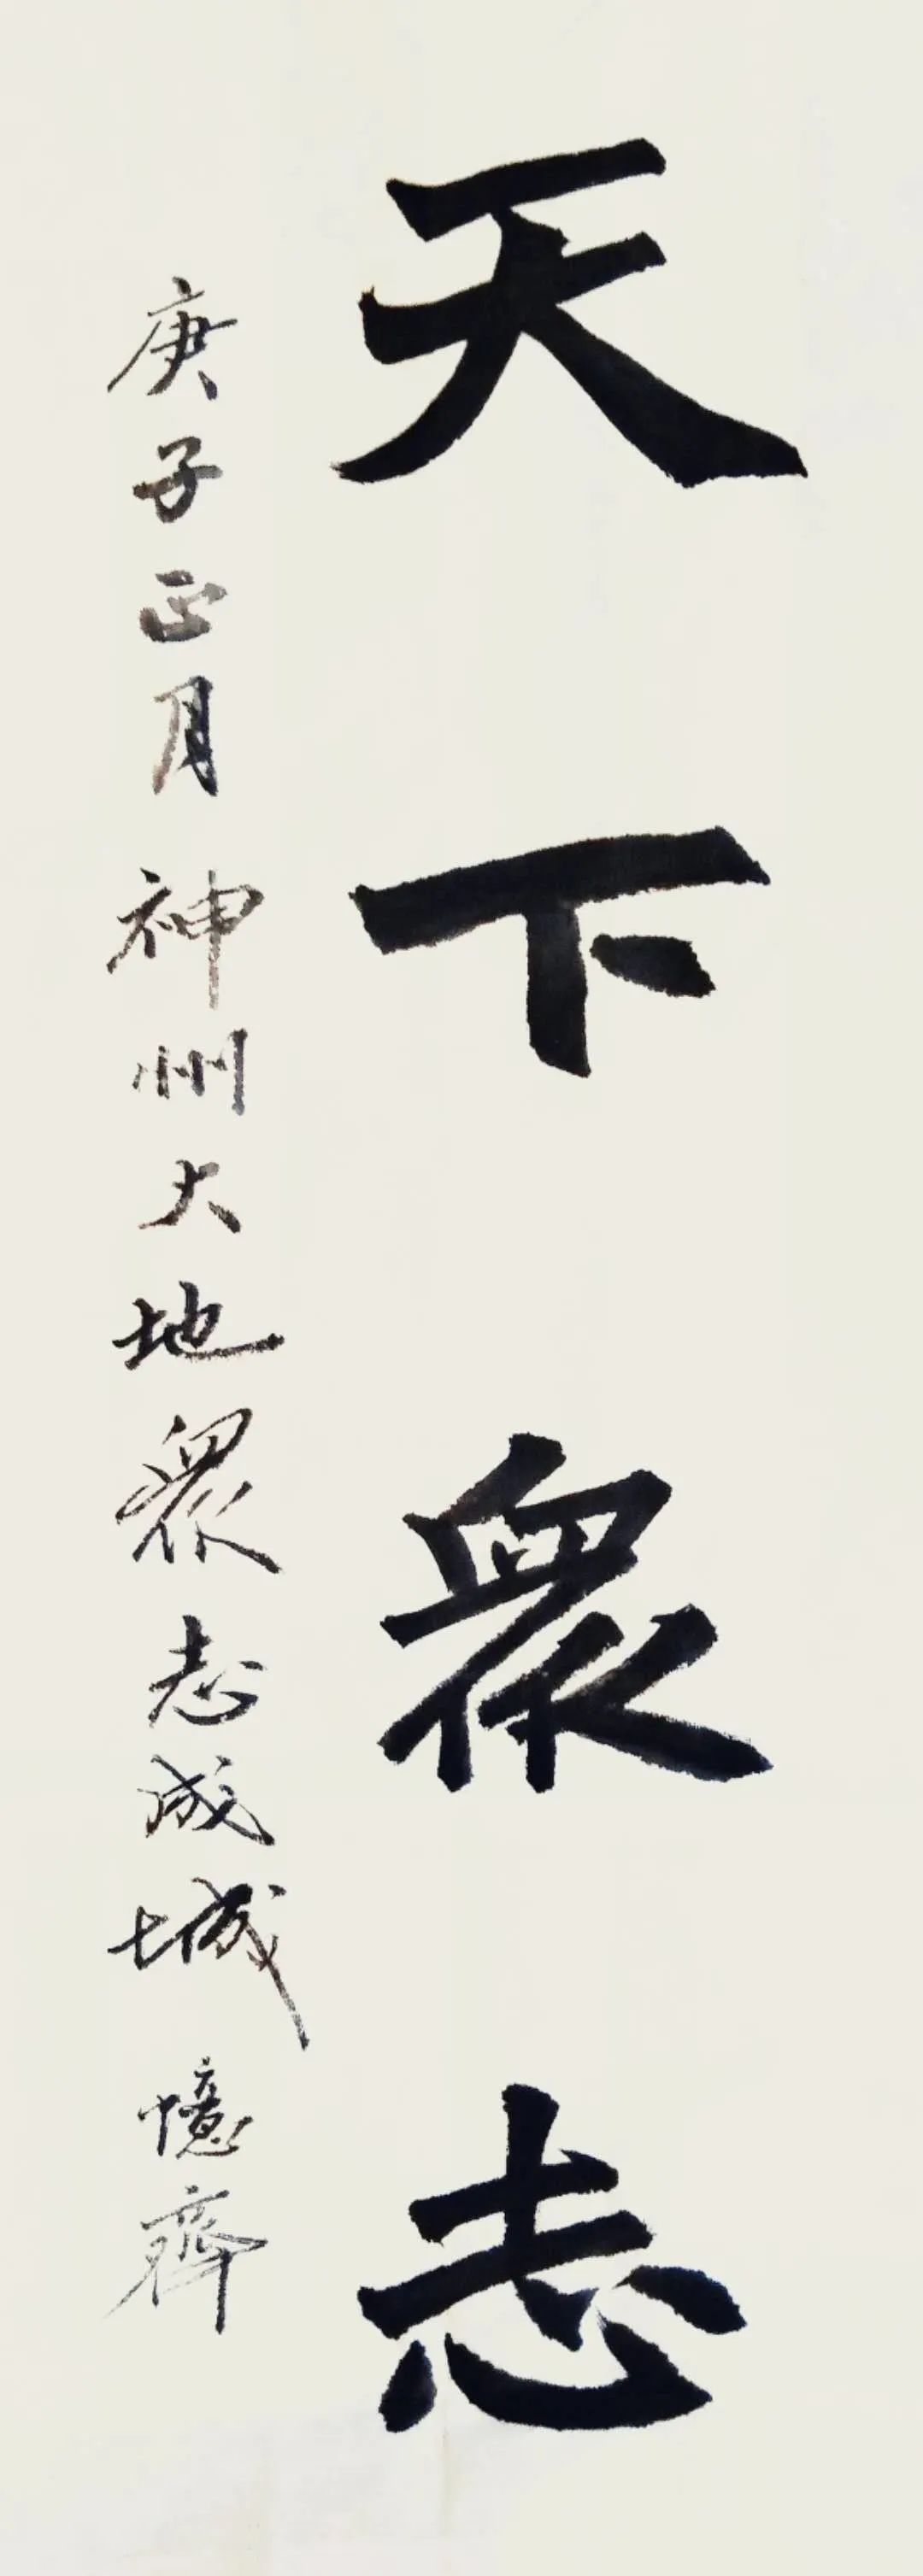 天下眾志
庚子正月神州大地眾志成城憶齊